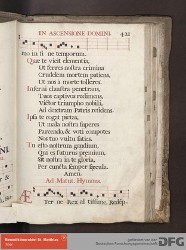 EN ASCENSIONE DOMINI. 425
mo in fi ne temporum.
Quæ te vicit clementia,
Ut ferres nostra crimina
Crudelem mortem patiens,
Ut nos a morte tolleres.
Inferni claustra penetrans,
Tuos captivos redimens,
Victor triumpho nobili,
Ad dextram Patris residens.
Ipsa te cogat pietas,
Ut mala nostra superes
Parcendo, & voti compotes
Nos tuo vultu saties.
Tu esto nostrum gaudium,
Qui es futurus præmium,
Sit nostra in te gloria,
Per cuncta semper sæcula.
Amen.
Ad Matut. Hymnus.
Æ Ter ne Rex al tissime, Redép-
gefördert von der
DFG